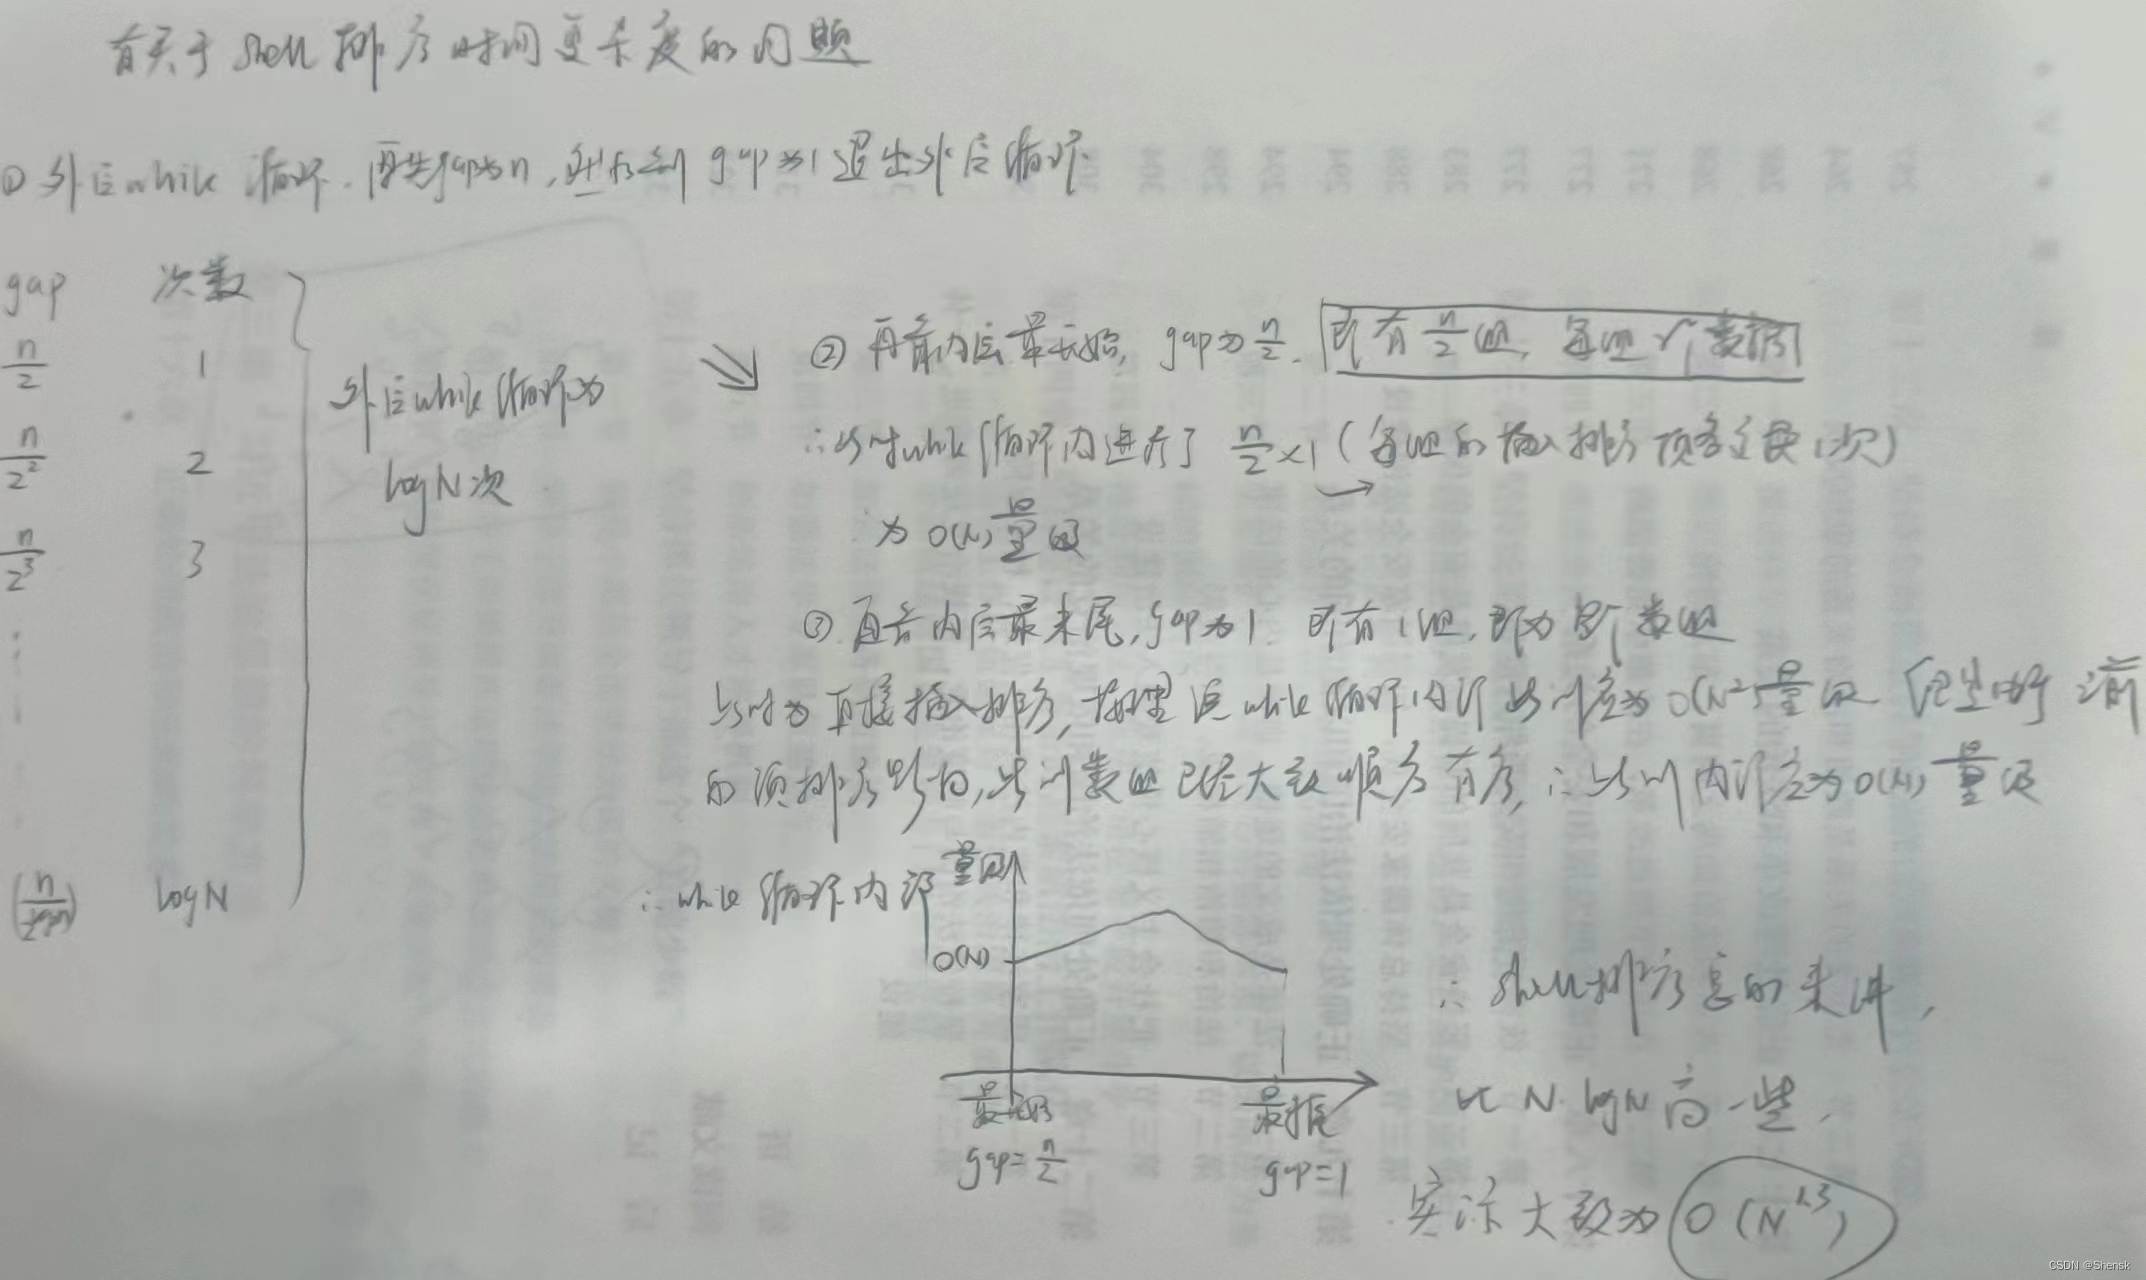 有关于shell排序时间复杂度的问题
① 外层while循环,再先gap为n,到gap为1退出外层循环
gap 次数
n/2 1
n/2² 2
n/2³ 3
logN
外层while循环为
logN次
② 再看内层最开始,gap为n/2. 即有n/2组,每组2个数据
∴此时while循环内进行了 n/2×1(每组的插入排序顶多交换1次)
为O(N)量级
③ 再看内层最末尾,gap为1 即有1组,即为整个数组
此时为直接插入排序,按理说while循环内部此时应为O(N²)量级 但由于之前
的预排序影响,此时数组已经大致顺序有序,∴此时内部应为O(N)量级
∴while循环内部
量级
O(N)
最开始
gap=n/2
最末尾
gap=1
∴shell排序总的来讲,
比N·logN高一些,
实际大致为O(N^1.3)
CSDN @Shensk